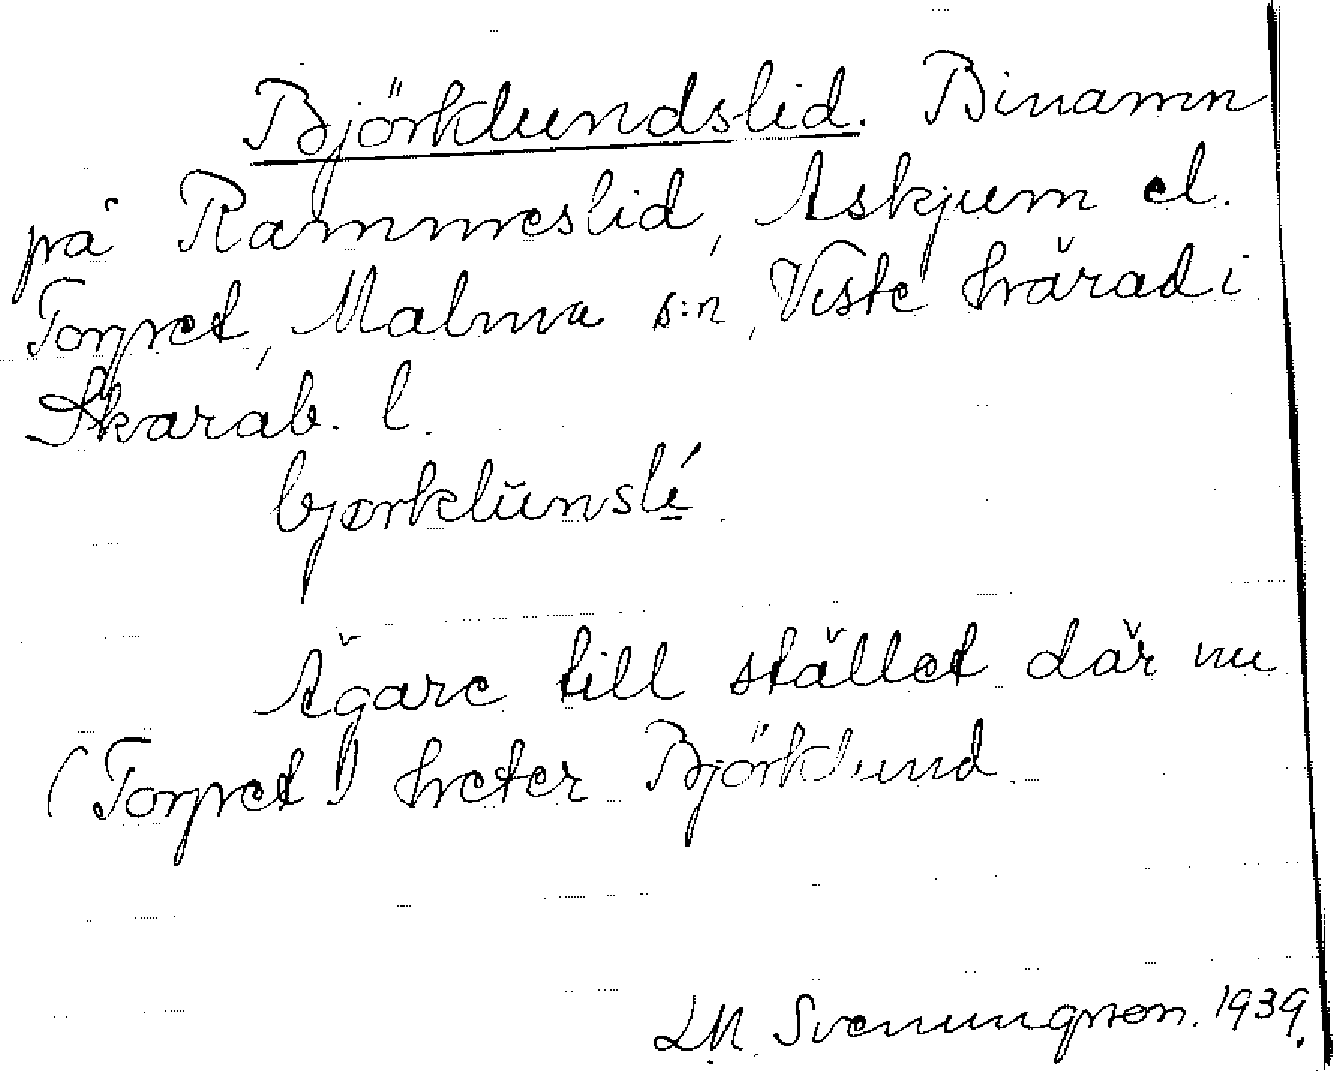 Björklundslid. Binamn
på Rammeslid, Askjum el.
Torpet, Malma s:n, Viste härad i
Skarab. l.
bjørklŭnslí
Ägare till stället där nu
(Torpet) heter Björklund.
1939.